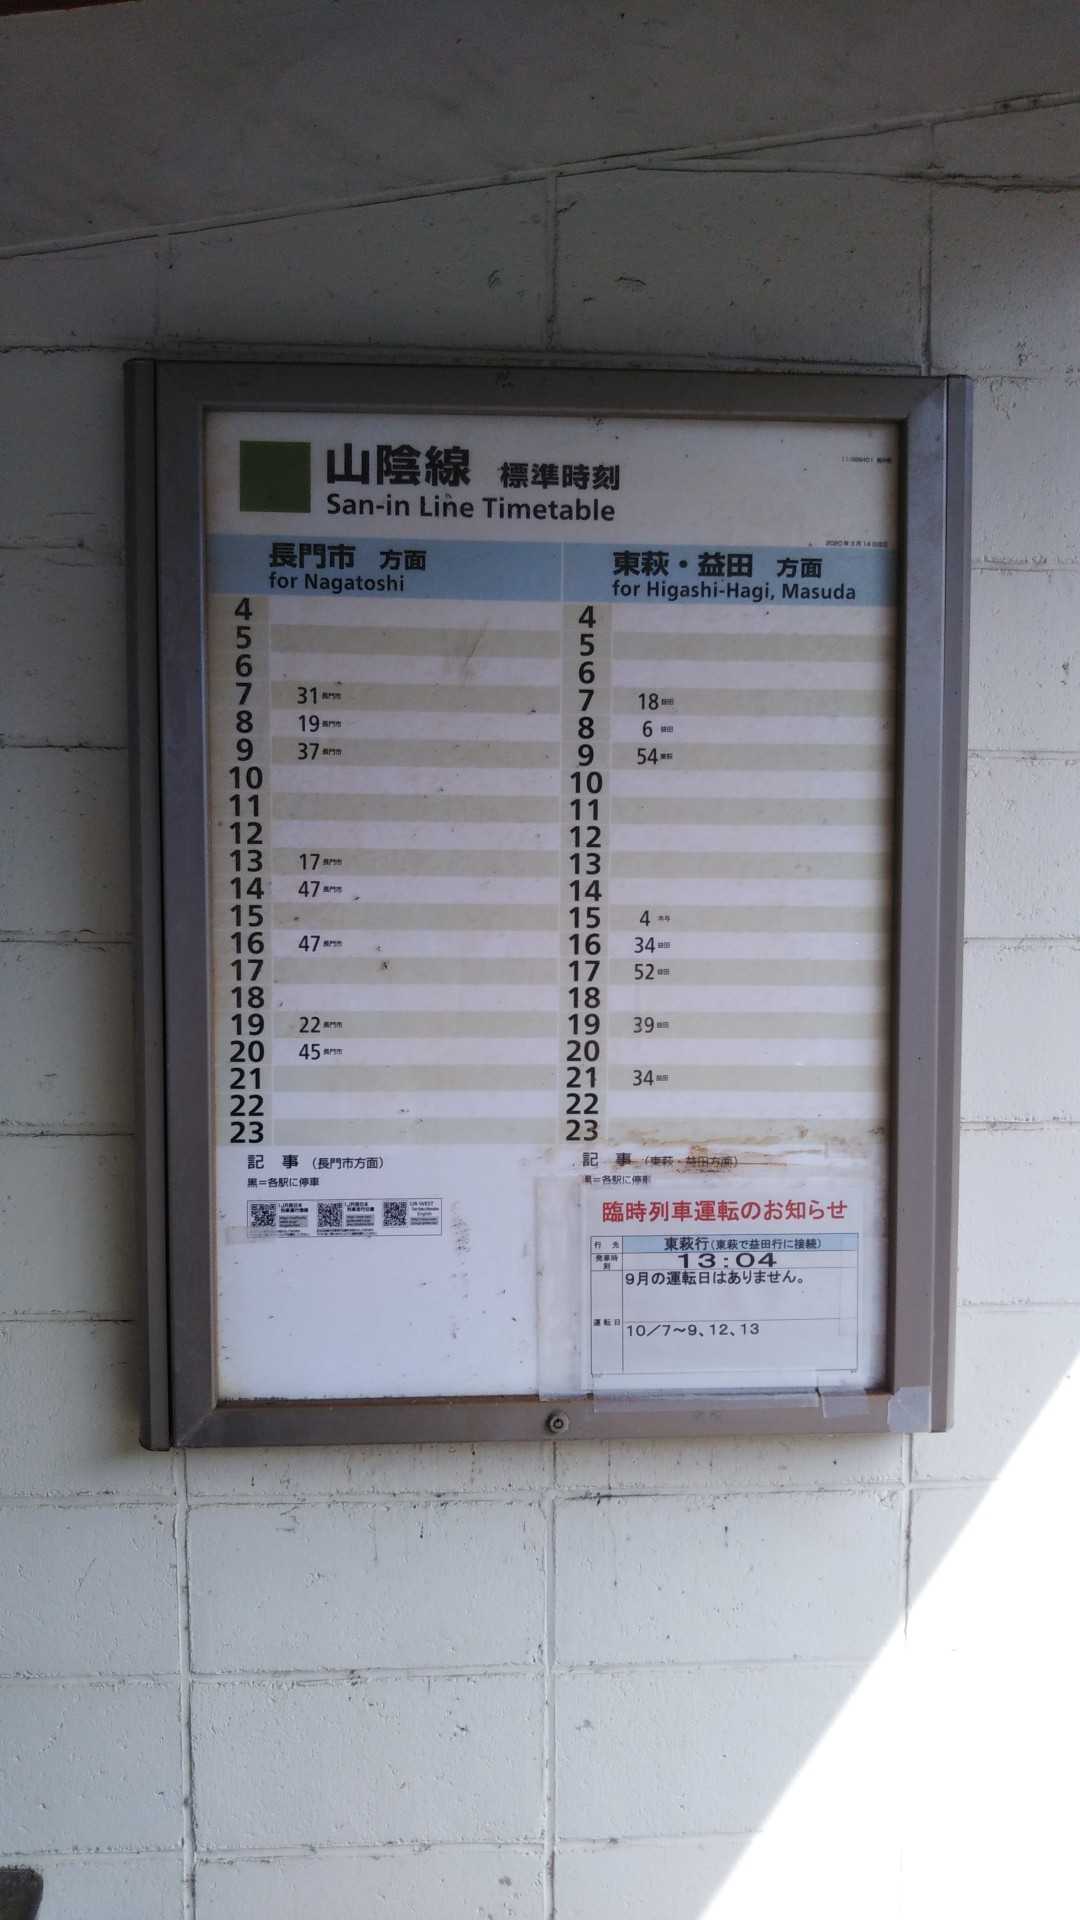 山陰線 標準時刻
San-in Line Timetable
長門市 方面
for Nagatoshi
4
5
6
7 31 長門市
8 19 長門市
9 37 長門市
10
11
12
13 17 長門市
14 47 長門市
15
16 47 長門市
17
18
19 22 長門市
20 45 長門市
21
22
23
記 事 (長門市方面)
黒=各駅に停車
東萩・益田 方面
for Higashi-Hagi, Masuda
4
5
6
7 18 益田
8 6 益田
9 54 東萩
10
11
12
13
14
15 4
16 34 益田
17 52 益田
18
19 39 益田
20
21 34 益田
22
23
記 事 (東萩・益田方面)
黒=各駅に停車
臨時列車運転のお知らせ
行 先 東萩行(東萩で益田行に接続)
発車時刻 13:04
運転日 9月の運転日はありません。
10/7~9、12、13